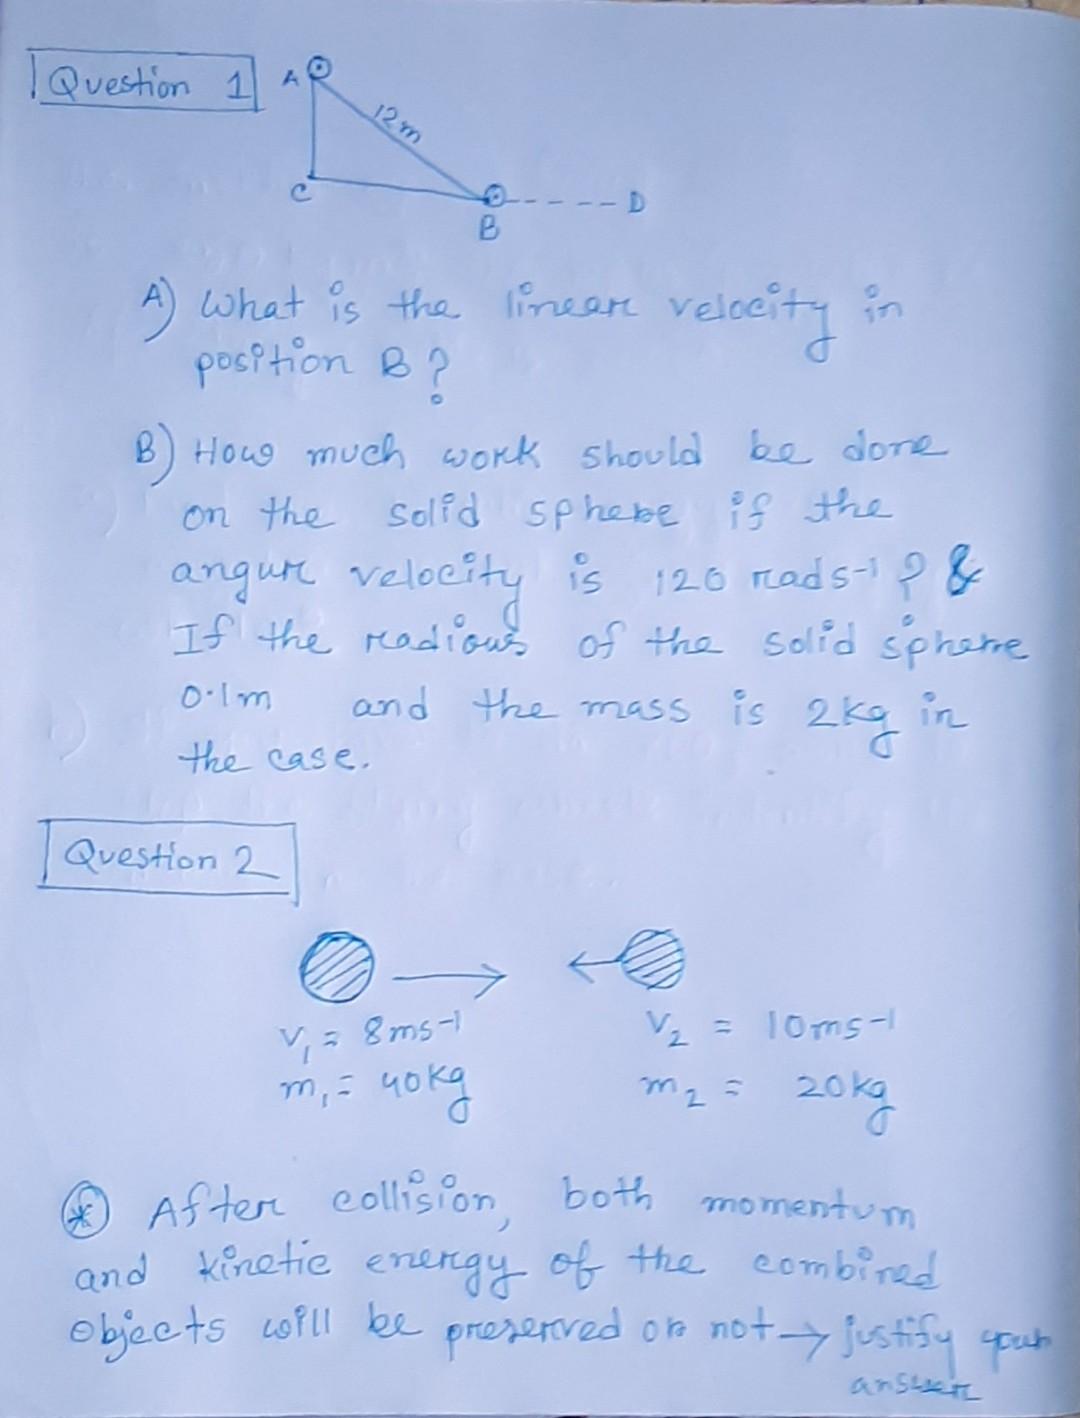 Question 1
A
12m
C
B
D
A) What is the linear velocity in
position B?
B) How much work should be done
on the solid sphere if the
angur velocity is 120 rads-1? &
If the radious of the solid sphere
0.1m and the mass is 2kg in
the case.
Question 2
v1 = 8ms-1
v2 = 10ms-1
m1 = 40kg
m2 = 20kg
* After collision, both momentum
and kinetic energy of the combined
objects will be preserved or not → justify your
answer